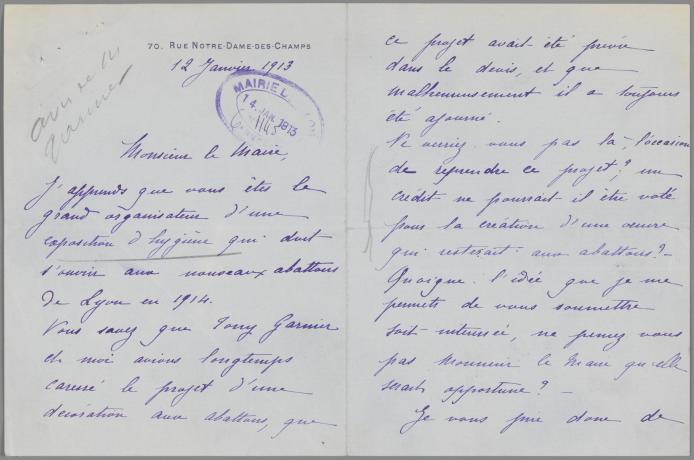 70. RUE NOTRE-DAME-DES-CHAMPS
12 Janvier 1913
MAIRIE
14 JAN 1913
avis de M
Garnier
Monsieur le Maire,
J'apprends que vous êtes le
grand organisateur d'une
exposition d'hygiène qui doit
s'ouvrir aux nouveaux abattoirs
de Lyon en 1914.
Vous savez que Tony Garnier
et moi avions longtemps
caressé le projet d'une
décoration aux abattoirs, que
ce projet avait été prévu
dans le devis, et que
malheureusement il a toujours
été ajourné.
Ne verriez-vous pas là, l'occasion
de reprendre ce projet? un
crédit ne pourrait il être voté
pour la création d'une œuvre
qui resterait aux abattoirs? -
Quoique l'idée que je me
permets de vous soumettre
soit intéressée, ne pensez vous
pas Monsieur le Maire qu'elle
serait opportune? -
Je vous prie donc de